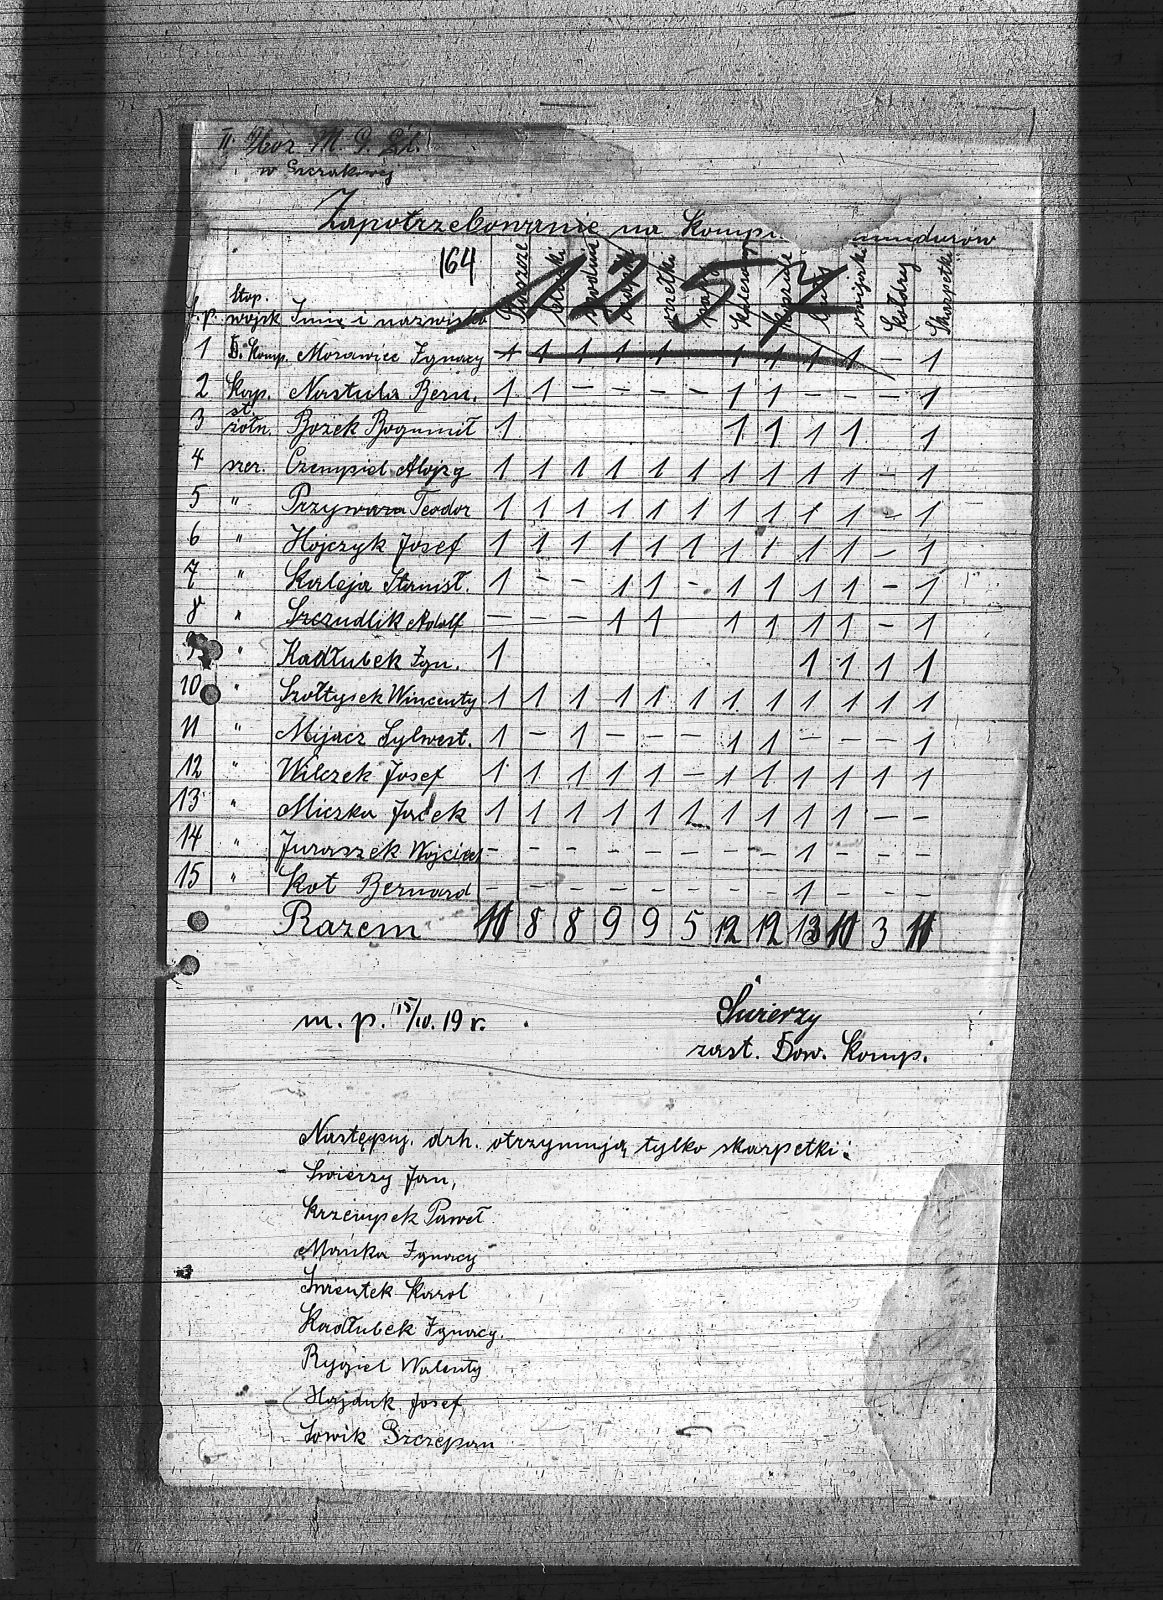 II. Baz. M. G. Śl.
w Szczakowej
Zapotrzebowanie na Komp. mundurów
164
1257
płaszcze bluzki spodnie czapki koszule owijaki Kołdry Skarpetki
l.p. Stop. wojsk Imię i nazwisko
1 D. Komp. Morawiec Ignacy 1 1 1 1 1 1 1 1 1 – 1
2 Kap. Nastula Bern. 1 1 – – – – 1 1 – – – 1
3 st. żołn. Bożek Bogumił 1 1 1 1 1 1
4 szer. Czempiel Alojzy 1 1 1 1 1 1 1 1 1 1 – 1
5 " Przywara Teodor 1 1 1 1 1 1 1 1 1 1 – 1
6 " Hojczyk Josef 1 1 1 1 1 1 1 1 1 1 – 1
7 " Kaleja Stanisł. 1 – – 1 1 – 1 1 1 1 – 1
8 " Szczudlik Adolf – – – 1 1 – 1 1 1 1 – 1
9 " Kadłubek Ign. 1 1 1 1 1
10 " Szołtysek Wincenty 1 1 1 1 1 1 1 1 1 1 1 1
11 " Mijacz Sylwest. 1 – 1 – – – 1 1 – – – 1
12 " Wilczek Josef 1 1 1 1 1 – 1 1 1 1 1 1
13 " Miczka Jacek 1 1 1 1 1 1 1 1 1 1 – –
14 " Juraszek Wojciech – – – – – – – – 1 – – –
15 " Kot Bernard – – – – – – – – 1 – – –
Razem 10 8 8 9 9 5 12 12 13 10 3 11
m. p. 15/10. 19 r.
Świerzy
zast. Dow. Komp.
Następuj. drh. otrzymują tylko skarpetki:
Świerzy Jan,
Krzempek Paweł
Mańka Ignacy
Świentek Karol
Kadłubek Ignacy.
Rygiel Walenty
Hajduk Josef
Sowik Szczepan